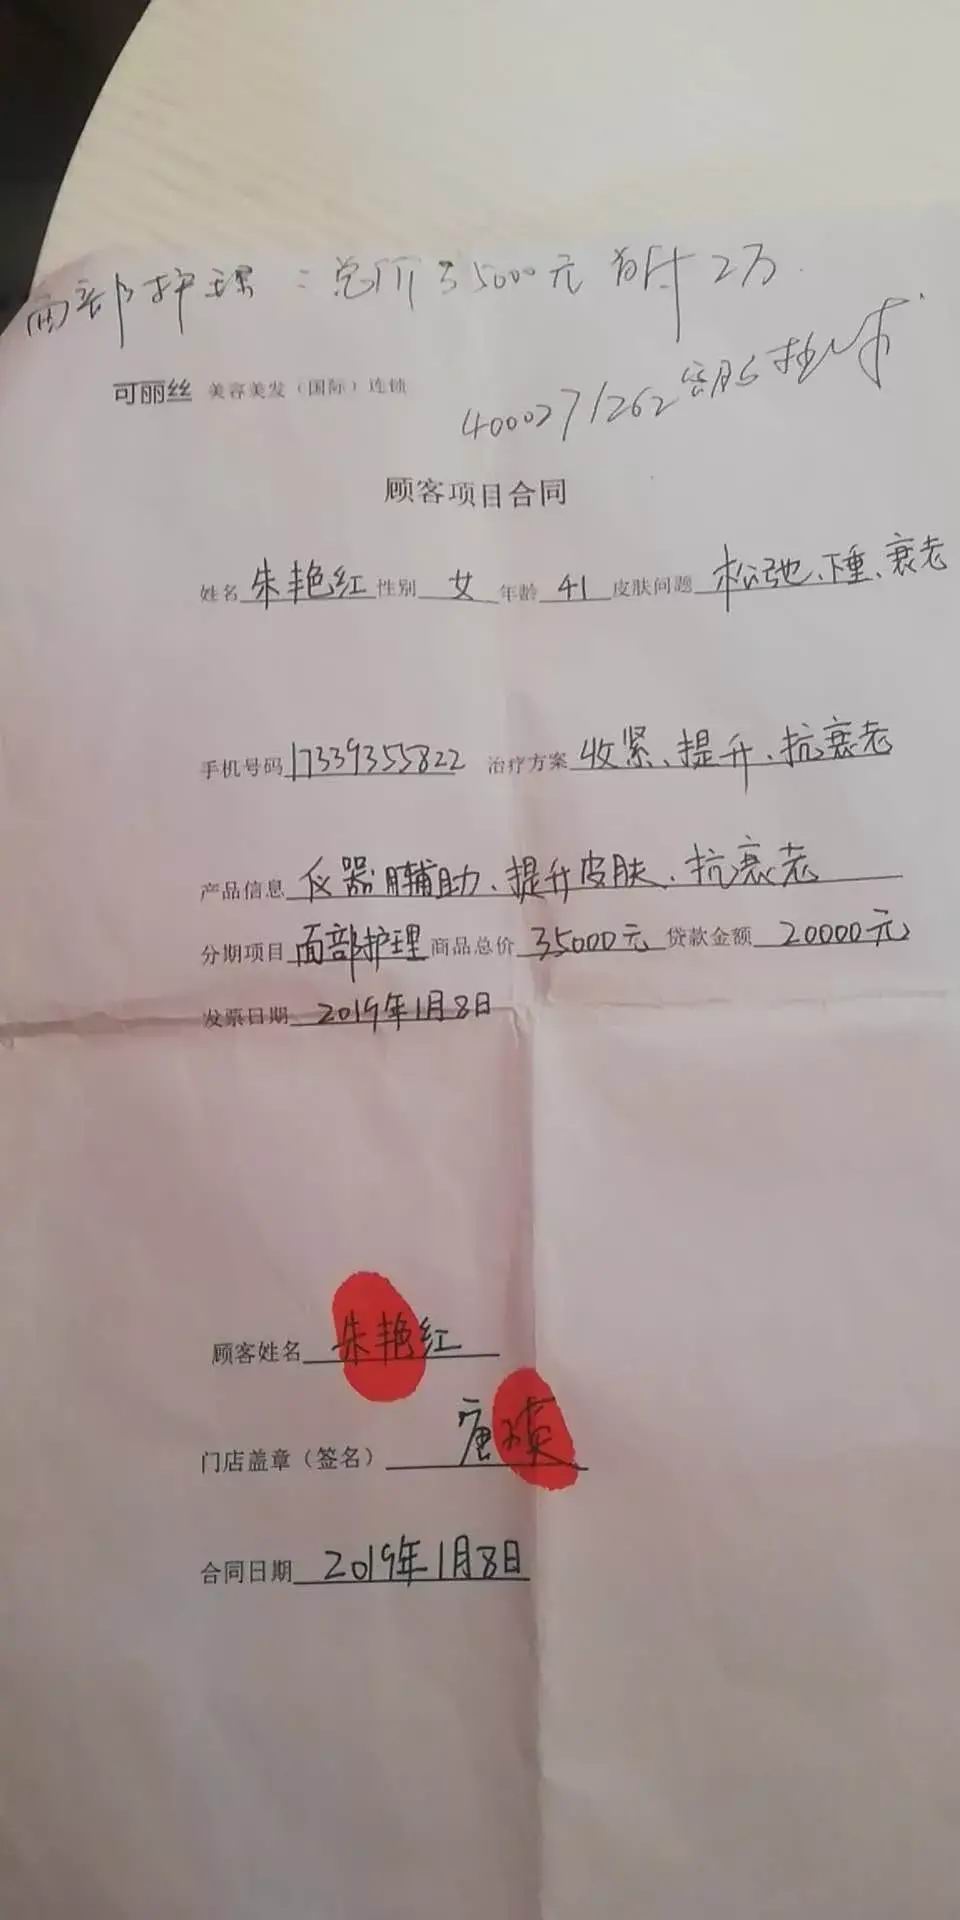 面部护理：总价35000元 首付2万
可丽丝 美容美发（国际）连锁
4000271262
顾客项目合同
姓名 朱艳红 性别 女 年龄 41 皮肤问题 松弛、下垂、衰老
手机号码 17339355822 治疗方案 收紧、提升、抗衰老
产品信息 仪器辅助、提升皮肤、抗衰老
分期项目 面部护理 商品总价 35000元 贷款金额 20000元
发票日期 2019年1月8日
顾客姓名 朱艳红
门店盖章（签名） 唐
合同日期 2019年1月8日